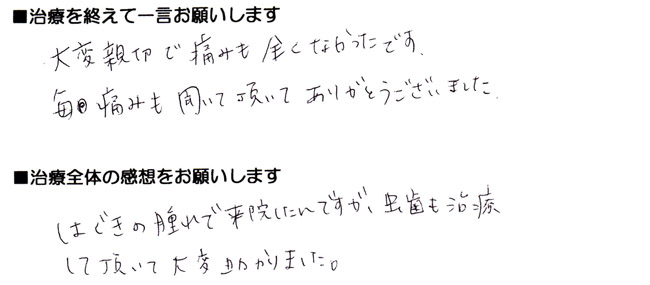 ■治療を終えて一言お願いします
大変親切で痛みも全くなかったです。
毎回痛みも聞いて頂いてありがとうございました
■治療全体の感想をお願いします
はぐきの腫れで来院したんですが、虫歯も治療
して頂いて大変助かりました。